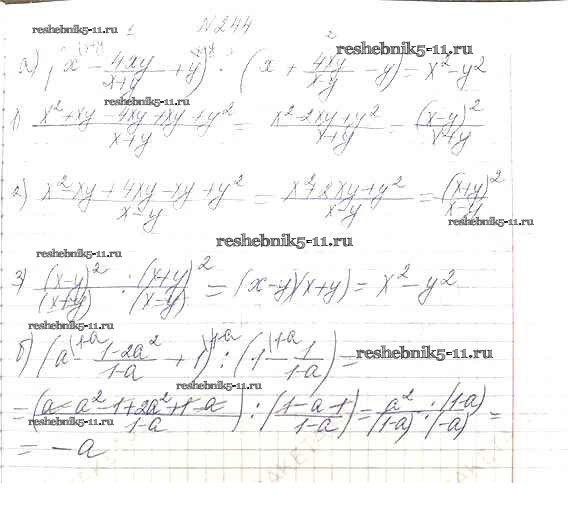 №244
reshebnik5-11.ru 1 2
reshebnik5-11.ru
а) (x - 4xy/(x+y) + y) · (x + 4xy/(x-y) - y) = x² - y²
reshebnik5-11.ru
1) (x² + xy - 4xy + xy + y²)/(x+y) = (x² - 2xy + y²)/(x+y) = (x-y)²/(x+y)
reshebnik5-11.ru
2) (x² - xy + 4xy - xy + y²)/(x-y) = (x² + 2xy + y²)/(x-y) = (x+y)²/(x-y)
reshebnik5-11.ru
reshebnik5-11.ru
reshebnik5-11.ru
3) (x-y)²/(x+y) · (x+y)²/(x-y) = (x-y)(x+y) = x² - y²
reshebnik5-11.ru
б) (a - (1-2a²)/(1-a) + 1) : (1 - 1/(1-a)) =
reshebnik5-11.ru
reshebnik5-11.ru
= (a - a² - 1 + 2a² + 1 - a)/(1-a) : (1-a-1)/(1-a) = a² · (1-a)/(1-a) · (-a) =
reshebnik5-11.ru
reshebnik5-11.ru
= -a